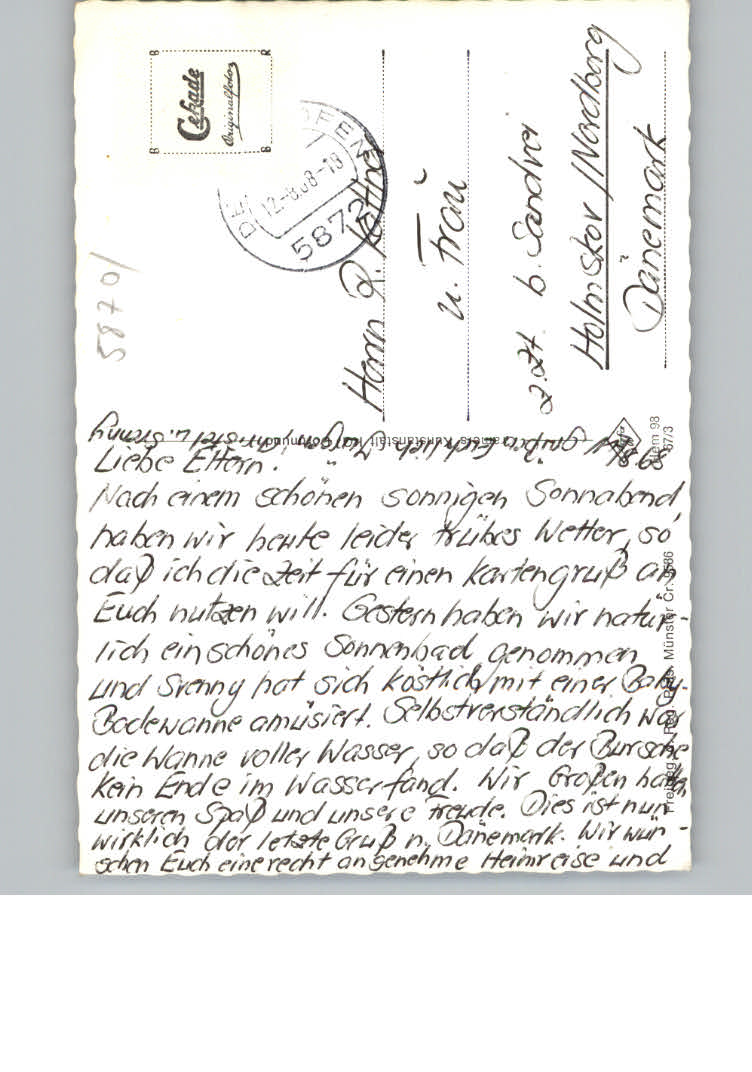 Cekade
Originalfoto
12.-8.68-18
5872
5870/
Herrn R. Kottner
u. Frau
z. Zt. b. Sandvei
Holmskov/Nordborg
Dänemark
11/8.68
Liebe Eltern!
Nach einem schönen sonnigen Sonnabend
haben wir heute leider trübes Wetter, so
daß ich die Zeit für einen Kartengruß an
Euch nutzen will. Gestern haben wir natür-
lich ein schönes Sonnenbad genommen
und Svenny hat sich köstlich mit einer Baby-
Badewanne amüsiert. Selbstverständlich war
die Wanne voller Wasser, so daß der Bursche
kein Ende im Wasser fand. Wir Großen hatten
unseren Spaß und unsere Freude. Dies ist nun
wirklich der letzte Gruß n. Dänemark. Wir wün-
schen Euch eine recht angenehme Heimreise und
grüßen Euch lieb u. Svenny
Cramers Kunstanstalt KG, Dortmund
Hem 98
67/3
Freigeg. Reg. Präs. Münster Cr. 9586